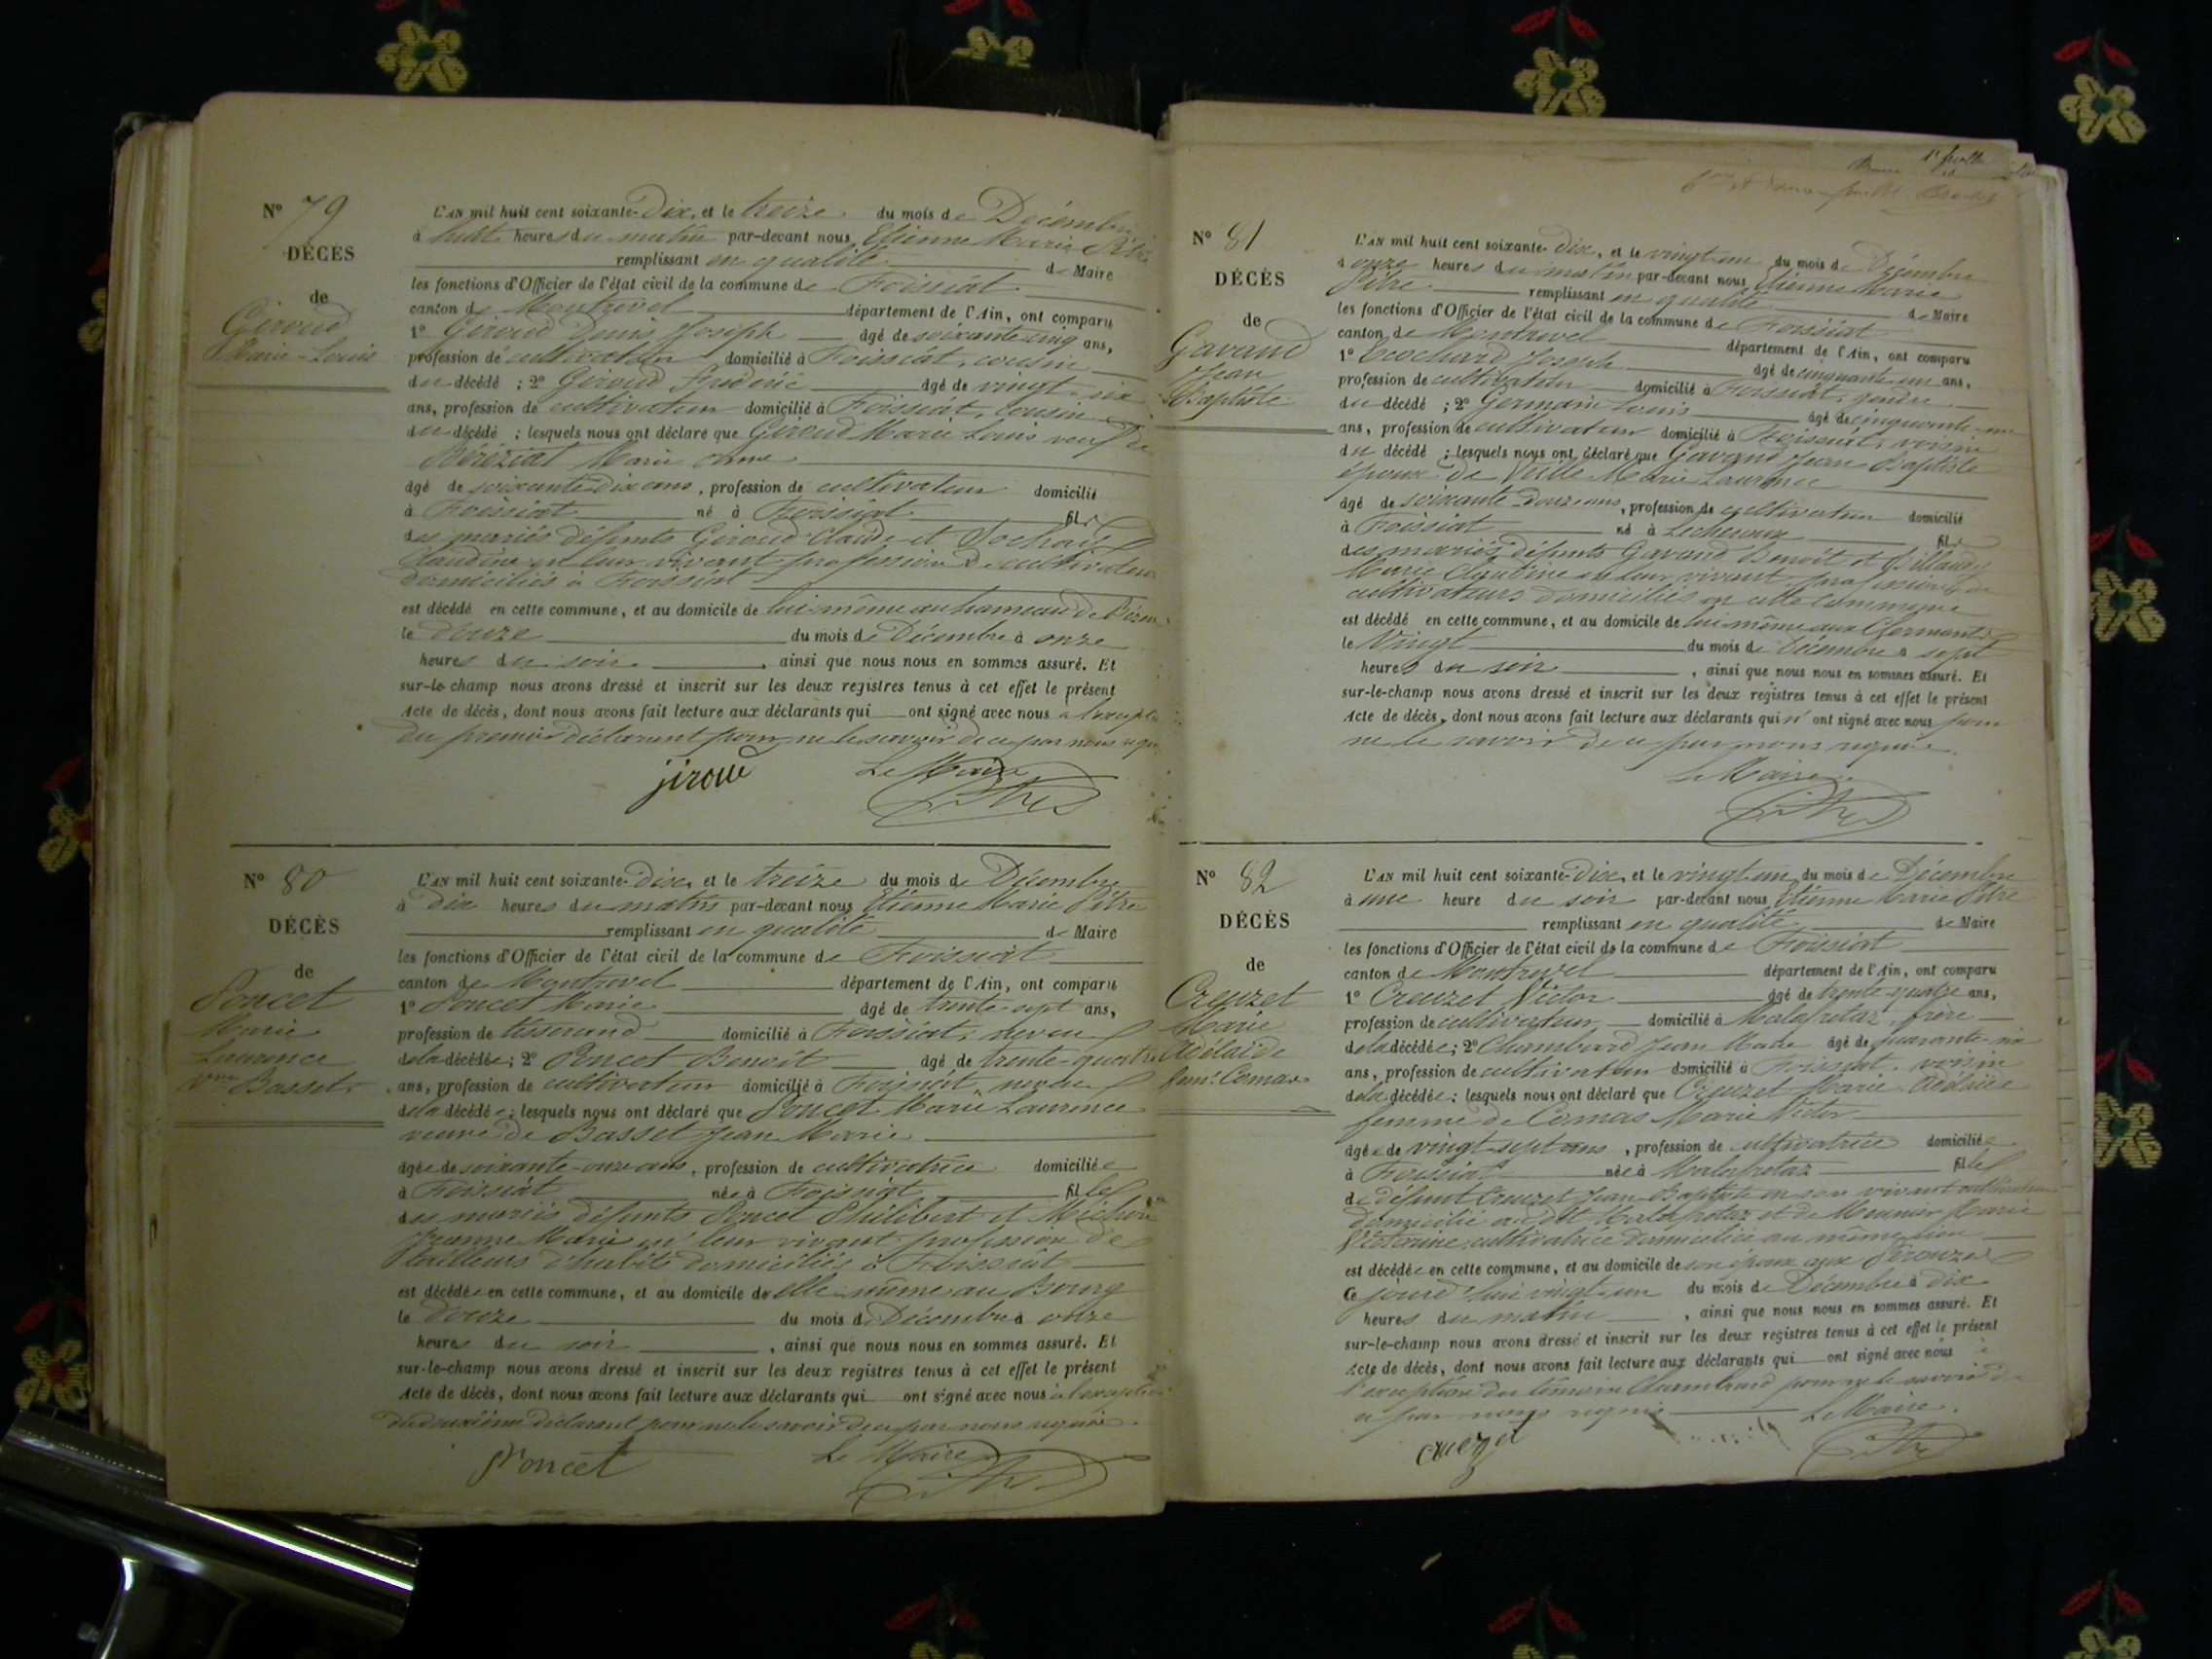 N° 79
DÉCÈS
de
Giroud
Marie-Louis
L'AN mil huit cent soixante-Dix, et le treize du mois de Décembre
à huit heures du matin par-devant nous Etienne Marie Pitre
remplissant en qualité de Maire
les fonctions d'Officier de l'état civil de la commune de Foissiat
canton de Montrevel département de l'Ain, ont comparu
1° Giroud Denis Joseph âgé de soixante cinq ans,
profession de cultivateur domicilié à Foissiat, cousin
du décédé ; 2° Giroud Frédéric âgé de vingt-six
ans, profession de cultivateur domicilié à Foissiat, cousin
du décédé ; lesquels nous ont déclaré que Giroud Marie Louis veuf de
Béréziat Marie Anne
âgé de soixante-dix ans, profession de cultivateur domicilié
à Foissiat né à Foissiat fils
des mariés défunts Giroud Claude et Sochay
Claudine en leur vivant profession de cultivateurs
domiciliés à Foissiat
est décédé en cette commune, et au domicile de lui-même au hameau de
le douze du mois de Décembre à onze
heures du soir, ainsi que nous nous en sommes assuré. Et
sur-le-champ nous avons dressé et inscrit sur les deux registres tenus à cet effet le présent
Acte de décès, dont nous avons fait lecture aux déclarants qui ont signé avec nous à l'exception
du premier déclarant pour ne le savoir de ce par nous requis
jirou Le Maire
Pitre
N° 80
DÉCÈS
de
Poncet
Marie
Laurence
Vve Basset
L'AN mil huit cent soixante-Dix, et le treize du mois de Décembre
à Dix heures du matin par-devant nous Etienne Marie Pitre
remplissant en qualité de Maire
les fonctions d'Officier de l'état civil de la commune de Foissiat
canton de Montrevel département de l'Ain, ont comparu
1° Poncet Marie âgé de trente-sept ans,
profession de tisserand domicilié à Foissiat, neveu
de la décédée ; 2° Poncet Benoit âgé de trente-quatre
ans, profession de cultivateur domicilié à Foissiat, neveu
de la décédée ; lesquels nous ont déclaré que Poncet Marie Laurence
veuve de Basset Jean Marie
âgée de soixante-onze ans, profession de cultivatrice domiciliée
à Foissiat née à Foissiat fille
des mariés défunts Poncet Philibert et Michon
Jeanne Marie en leur vivant profession de
tailleurs d'habits domiciliés à Foissiat
est décédée en cette commune, et au domicile de elle-même au Bourg
le douze du mois de Décembre à onze
heures du soir, ainsi que nous nous en sommes assuré. Et
sur-le-champ nous avons dressé et inscrit sur les deux registres tenus à cet effet le présent
Acte de décès, dont nous avons fait lecture aux déclarants qui ont signé avec nous à l'exception
du deuxième déclarant pour ne le savoir de ce par nous requis.
Poncet Le Maire
Pitre
N° 81
DÉCÈS
de
Gavand
Jean
Baptiste
L'AN mil huit cent soixante-Dix, et le vingt un du mois de Décembre
à onze heures du matin par-devant nous Etienne Marie
Pitre remplissant en qualité de Maire
les fonctions d'Officier de l'état civil de la commune de Foissiat
canton de Montrevel département de l'Ain, ont comparu
1° Ecochard Joseph âgé de cinquante un ans,
profession de cultivateur domicilié à Foissiat, gendre
du décédé ; 2° Germain Louis âgé de cinquante-un
ans, profession de cultivateur domicilié à Foissiat, voisin
du décédé ; lesquels nous ont déclaré que Gavand Jean Baptiste
époux de Veille Marie Laurence
âgé de soixante douze ans, profession de cultivateur domicilié
à Foissiat né à Lescheroux fils
des mariés défunts Gavand Benoit et Billaud
Marie Claudine en leur vivant profession de
cultivateurs domiciliés en cette commune
est décédé en cette commune, et au domicile de lui-même aux Clermonts
le Vingt du mois de Décembre à sept
heures du soir, ainsi que nous nous en sommes assuré. Et
sur-le-champ nous avons dressé et inscrit sur les deux registres tenus à cet effet le présent
Acte de décès, dont nous avons fait lecture aux déclarants qui n'ont signé avec nous pour
ne le savoir de ce par nous requis.
Le Maire
Pitre
N° 82
DÉCÈS
de
Creuzet
Marie
Adélaïde
femme Comas
L'AN mil huit cent soixante-Dix, et le vingt un du mois de Décembre
à une heure du soir par-devant nous Etienne Marie Pitre
remplissant en qualité de Maire
les fonctions d'Officier de l'état civil de la commune de Foissiat
canton de Montrevel département de l'Ain, ont comparu
1° Creuzet Victor âgé de trente-quatre ans,
profession de cultivateur domicilié à Malafretaz, frère
de la décédée ; 2° Chambard Jean Marie âgé de quarante-six
ans, profession de cultivateur domicilié à Foissiat, voisin
de la décédée ; lesquels nous ont déclaré que Creuzet Marie Adélaïde
femme de Comas Marie Victor
âgée de vingt-sept ans, profession de cultivatrice domiciliée
à Foissiat née à Malafretaz fille
de défunt Creuzet Jean-Baptiste en son vivant cultivateur
domicilié au dit Malafretaz et de Meunier Marie
Victorine cultivatrice domiciliée au même lieu
est décédée en cette commune, et au domicile de son époux aux
Ce jourd'hui vingt-un du mois de Décembre à dix
heures du matin, ainsi que nous nous en sommes assuré. Et
sur-le-champ nous avons dressé et inscrit sur les deux registres tenus à cet effet le présent
Acte de décès, dont nous avons fait lecture aux déclarants qui ont signé avec nous à
l'exception du témoin Chambard pour ne le savoir de
ce par nous requis Le Maire.
creuzet Pitre